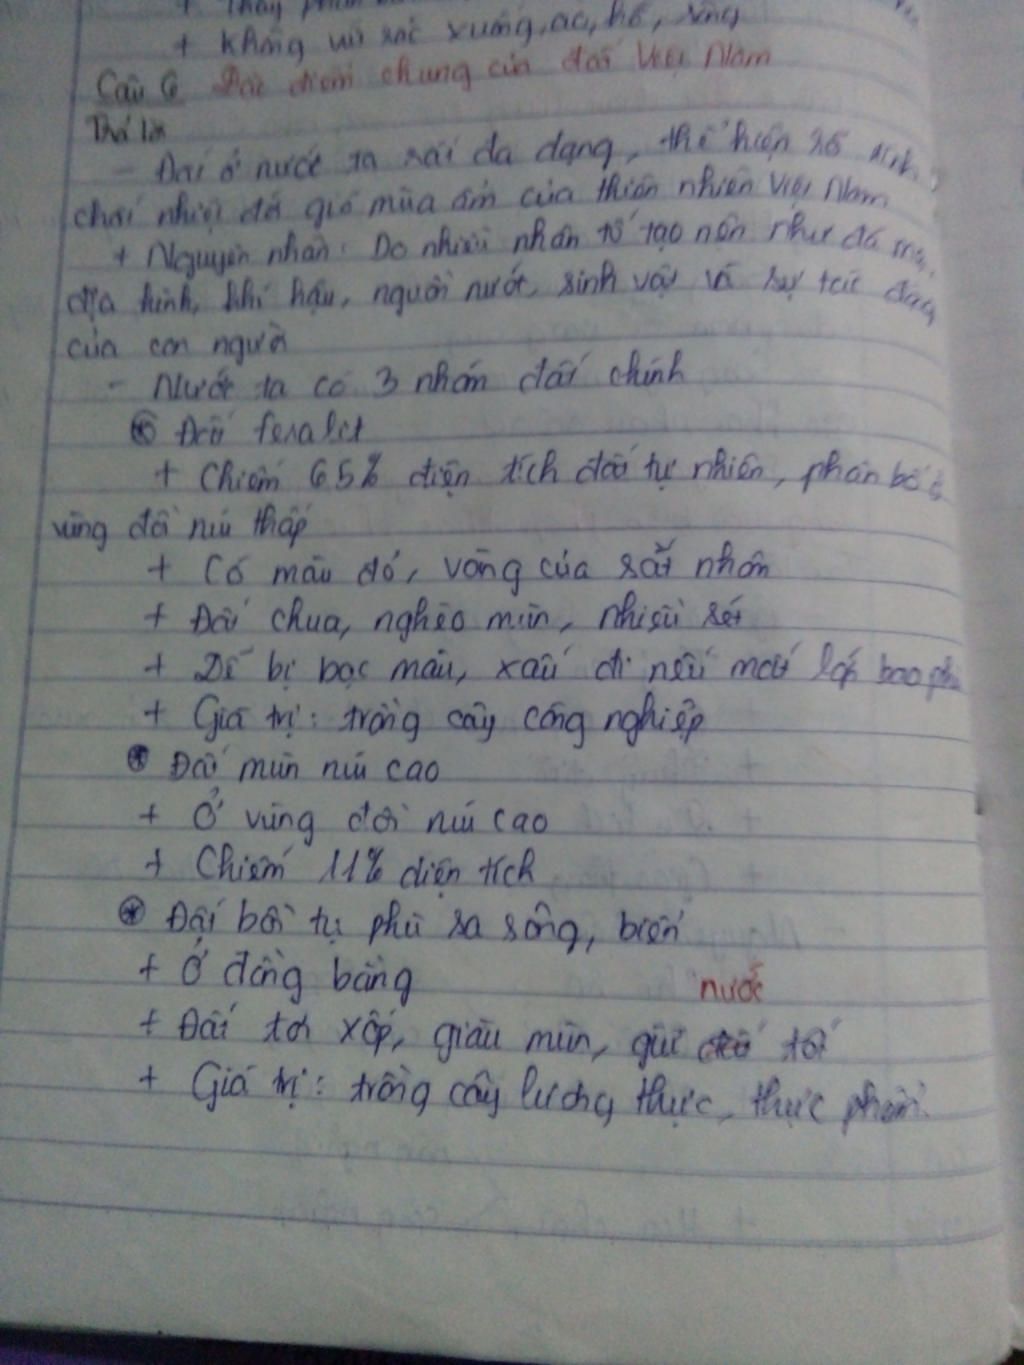 + Thấy phân
+ Không vứt rác xuống, ao, hồ, sông
Câu 6 Đặc điểm chung của đất Việt Nam
Trả lời
- Đất ở nước ta rất đa dạng, thể hiện rõ tính
chất nhiệt đới gió mùa ẩm của thiên nhiên Việt Nam
+ Nguyên nhân: Do nhiều nhân tố tạo nên như đá mẹ,
địa hình, khí hậu, nguồn nước, sinh vật và sự tác động
của con người
- Nước ta có 3 nhóm đất chính
* Đất feralit
+ Chiếm 65% diện tích đất tự nhiên, phân bố ở
vùng đồi núi thấp
+ Có màu đỏ, vàng của sắt nhôm
+ Đất chua, nghèo mùn, nhiều sét
+ Dễ bị bạc màu, xấu đi nếu mất lớp bao phủ
+ Giá trị: trồng cây công nghiệp
* Đất mùn núi cao
+ Ở vùng đồi núi cao
+ Chiếm 11% diện tích
* Đất bồi tụ phù sa sông, biển
+ Ở đồng bằng
nước
+ Đất tơi xốp, giàu mùn, giữ tốt
+ Giá trị: trồng cây lương thực, thực phẩm.